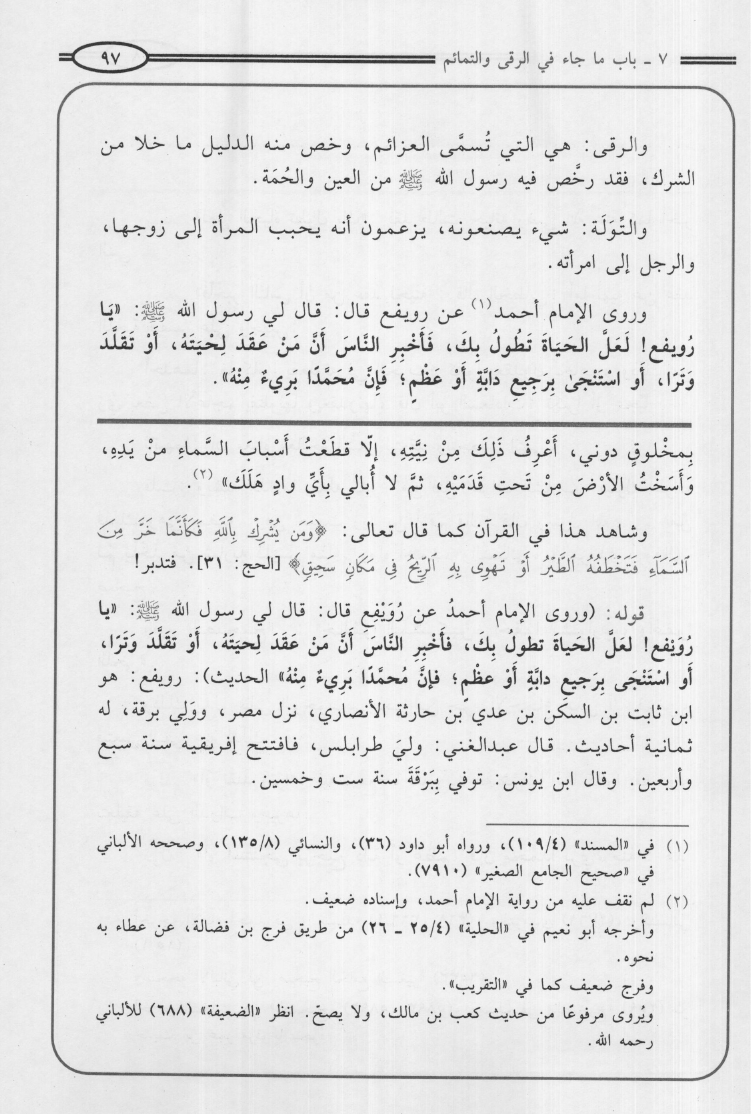 ٧ ـ باب ما جاء في الرقى والتمائم
٩٧
والرقى: هي التي تُسمَّى العزائم، وخص منه الدليل ما خلا من
الشرك، فقد رخَّص فيه رسول الله ﷺ من العين والحُمَة.
والتِّوَلَة: شيء يصنعونه، يزعمون أنه يحبب المرأة إلى زوجها،
والرجل إلى امرأته.
وروى الإمام أحمد(١) عن رويفع قال: قال لي رسول الله ﷺ: «يَا
رُويفع! لَعَلَّ الحَيَاةَ تَطُولُ بِكَ، فَأَخْبِرِ النَّاسَ أَنَّ مَنْ عَقَدَ لِحْيَتَهُ، أَوْ تَقَلَّدَ
وَتَرًا، أَو اسْتَنْجَىٰ بِرَجِيعِ دَابَّةٍ أَوْ عَظْمٍ؛ فَإِنَّ مُحَمَّدًا بَرِيءٌ مِنْهُ».
بِمخْلوقٍ دوني، أَعْرِفُ ذَلِكَ مِنْ نِيَّتِهِ، إِلّا قطَعْتُ أَسْبابَ السَّماءِ منْ يَدِهِ،
وَأَسَخْتُ الأرْضَ مِنْ تَحتِ قَدَمَيْهِ، ثمَّ لا أُبالي بِأَيِّ وادٍ هَلَكَ» (٢).
وشاهد هذا في القرآن كما قال تعالى: ﴿وَمَن يُشْرِكْ بِٱللَّهِ فَكَأَنَّمَا خَرَّ مِنَ
ٱلسَّمَآءِ فَتَخْطَفُهُ ٱلطَّيْرُ أَوْ تَهْوِى بِهِ ٱلرِّيحُ فِى مَكَانٍ سَحِيقٍ﴾ [الحج: ٣١]. فتدبر!
قوله: (وروى الإمام أحمدُ عن رُوَيْفِعٍ قال: قال لي رسول الله ﷺ: «يا
رُوَيْفع! لعَلَّ الحَياةَ تطولُ بِكَ، فأَخْبِرِ النَّاسَ أَنَّ مَنْ عَقَدَ لِحيَتَهُ، أَوْ تَقَلَّدَ وَتَرًا،
أَو اسْتَنْجَى بِرَجيعِ دابَّةٍ أَوْ عظْمٍ؛ فإنَّ مُحمَّدًا بَرِيءٌ مِنْهُ» الحديث): رويفع: هو
ابن ثابت بن السكَن بن عدي بن حارثة الأنصاري، نزل مصر، ووَلِي برقة، له
ثمانية أحاديث. قال عبدالغني: وليَ طرابلس، فافتتح إفريقية سنة سبع
وأربعين. وقال ابن يونس: توفي بِبَرْقَةَ سنة ست وخمسين.
(١) في «المسند» (١٠٩/٤)، ورواه أبو داود (٣٦)، والنسائي (١٣٥/٨)، وصححه الألباني
في «صحيح الجامع الصغير» (٧٩١٠).
(٢) لم نقف عليه من رواية الإمام أحمد، وإسناده ضعيف.
وأخرجه أبو نعيم في «الحلية» (٢٥/٤ ـ ٢٦) من طريق فرج بن فضالة، عن عطاء به
نحوه.
وفرج ضعيف كما في «التقريب».
ويُروى مرفوعًا من حديث كعب بن مالك، ولا يصحّ. انظر «الضعيفة» (٦٨٨) للألباني
رحمه الله.